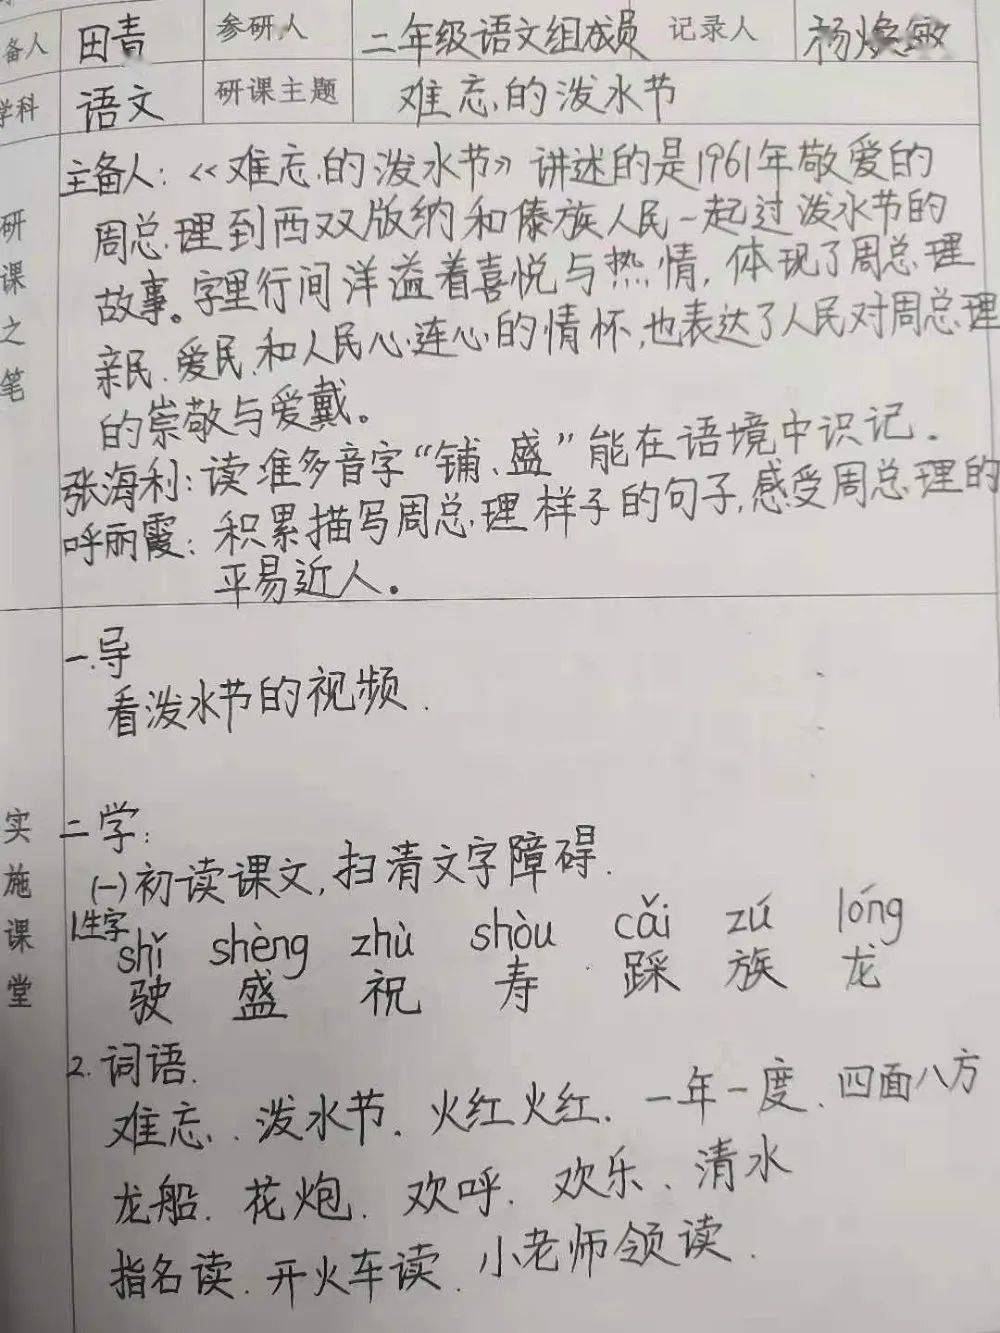 备人 田青 参研人 二年级语文组成员 记录人 杨焕敏
学科 语文 研课主题 难忘的泼水节
研课之笔
主备人：《难忘的泼水节》讲述的是1961年敬爱的
周总理到西双版纳和傣族人民一起过泼水节的
故事。字里行间洋溢着喜悦与热情，体现了周总理
亲民、爱民、和人民心连心的情怀，也表达了人民对周总理
的崇敬与爱戴。
张海利：读准多音字“铺、盛”能在语境中识记.
呼丽霞：积累描写周总理样子的句子,感受周总理的
平易近人。
实施课堂
一.导
看泼水节的视频.
二学：
(一)初读课文,扫清文字障碍.
1生字
shǐ shèng zhù shòu cǎi zú lóng
驶 盛 祝 寿 踩 族 龙
2.词语.
难忘、泼水节、火红火红、一年一度、四面八方
龙船、花炮、欢呼、欢乐、清水
指名读、开火车读、小老师领读.